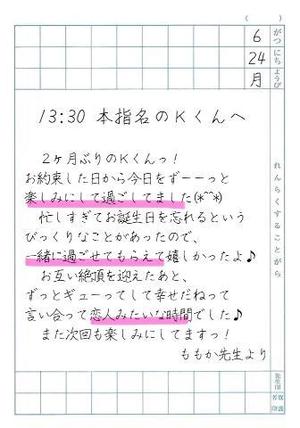 ( )
6 がつ
24 にち
月 ようび
れんらくすることがら
13:30 本指名のKくんへ
2ヶ月ぶりのKくんっ！
お約束した日から今日をずーーっと
楽しみにして過ごしてました(*^^*)
忙しすぎてお誕生日を忘れるという
びっくりなことがあったので、
一緒に過ごせてもらえて嬉しかったよ♪
お互い絶頂を迎えたあと、
ずっとギューってして幸せだねって
言い合って恋人みたいな時間でした♪
また次回も楽しみにしてますっ！
ももか先生より